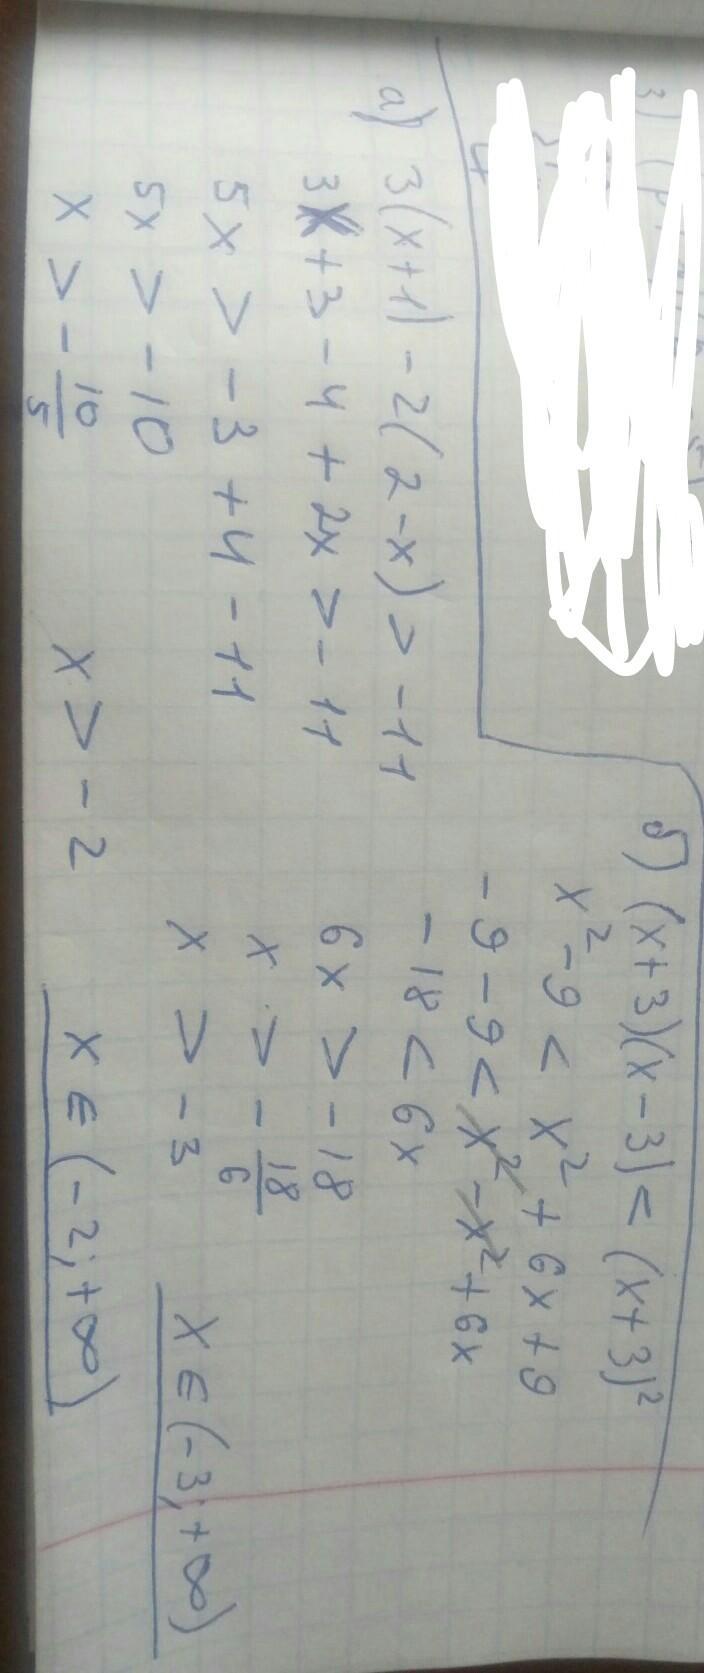 а) 3(x+1) - 2(2-x) > -11
3x + 3 - 4 + 2x > -11
5x > -3 + 4 - 11
5x > -10
x > -10/5
x > -2
x ∈ (-2; +∞)
б) (x+3)(x-3) < (x+3)²
x² - 9 < x² + 6x + 9
-9 - 9 < x² - x² + 6x
-18 < 6x
6x > -18
x > -18/6
x > -3
x ∈ (-3; +∞)